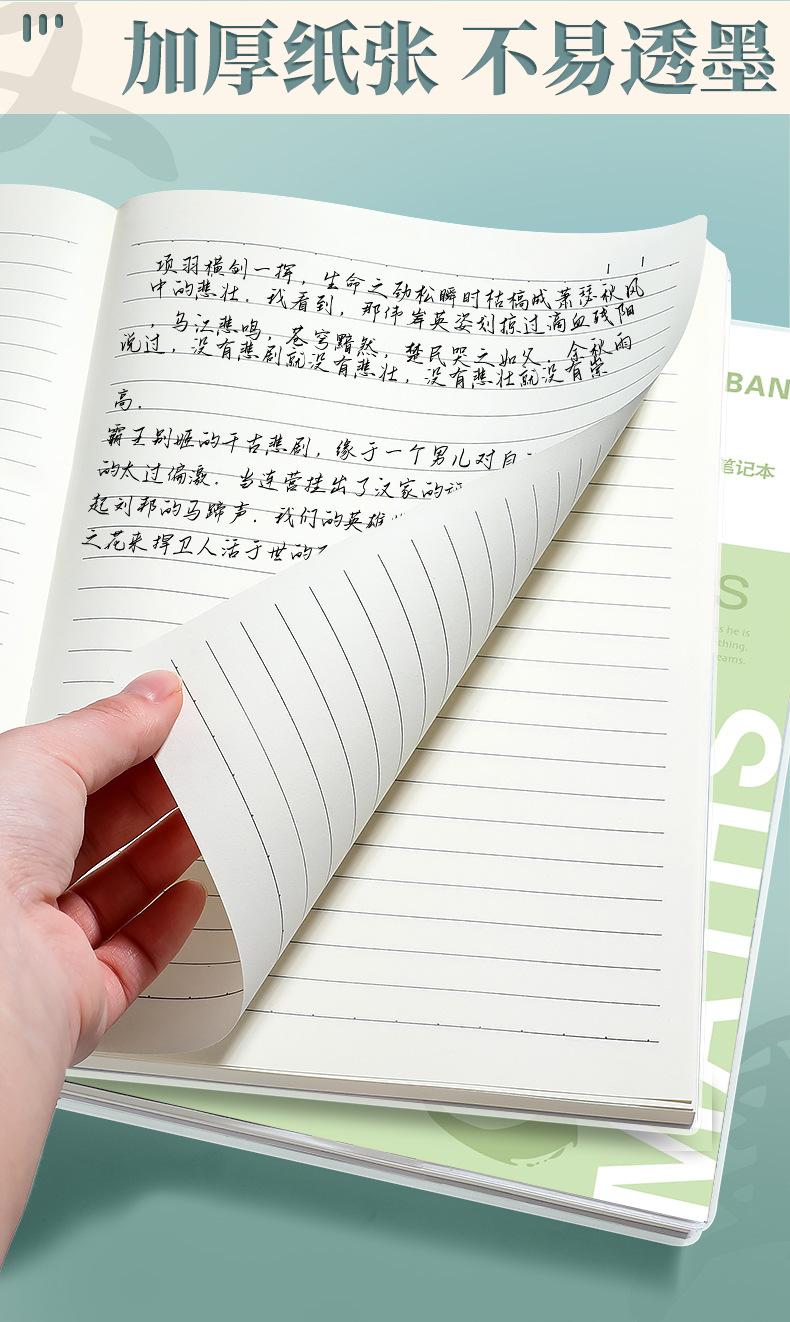 加厚纸张 不易透墨
项羽横剑一挥，生命之劲松瞬时枯槁成萧瑟秋风
中的悲壮．我看到，那伟岸英姿划掠过滴血残阳
，乌江悲鸣，苍穹黯然，楚民哭之如父，金秋雨
说过，没有悲剧就没有悲壮，没有悲壮就没有崇
高．
霸王别姬的千古悲剧，缘于一个男儿对自
的太过偏激．当连营挂出了汉家的
起刘邦的马蹄声．我们的英雄
之花来捍卫人活于世的
BAN
笔记本
S
s he is
thing.
eams.